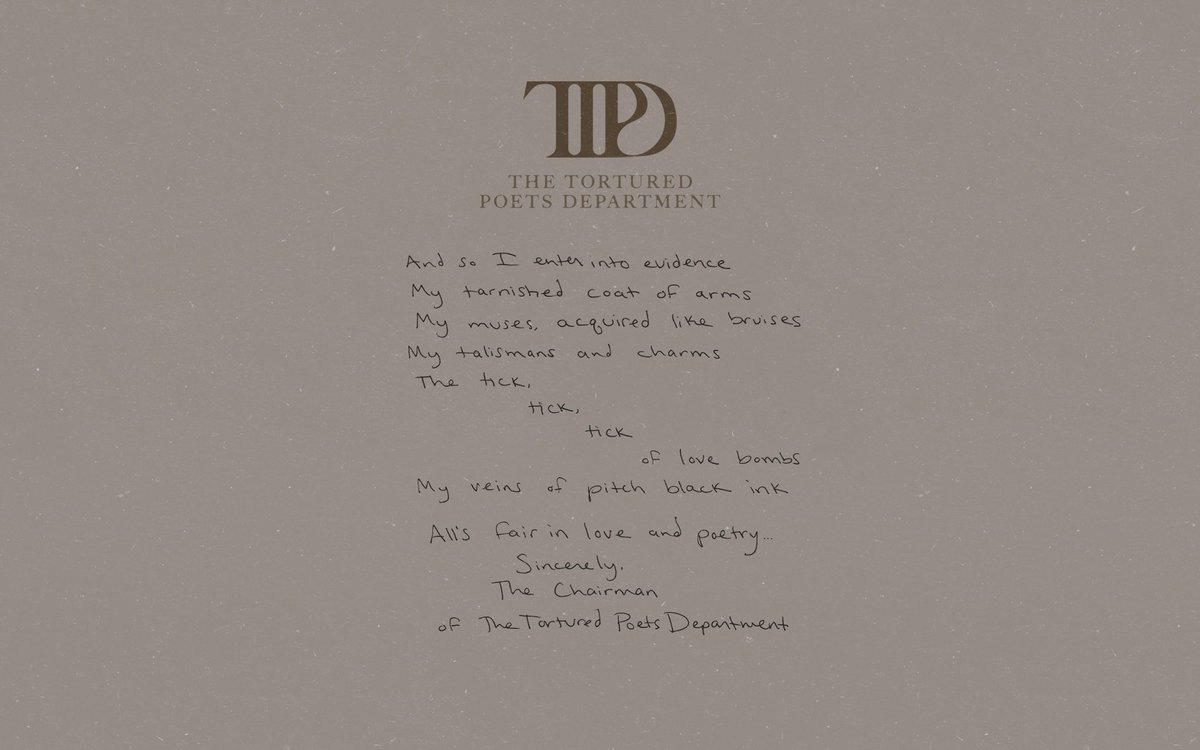 TTPD
THE TORTURED
POETS DEPARTMENT
And so I enter into evidence
My tarnished coat of arms
My muses, acquired like bruises
My talismans and charms
The tick,
tick,
tick
of love bombs
My veins of pitch black ink
All's fair in love and poetry...
Sincerely,
The Chairman
of The Tortured Poets Department